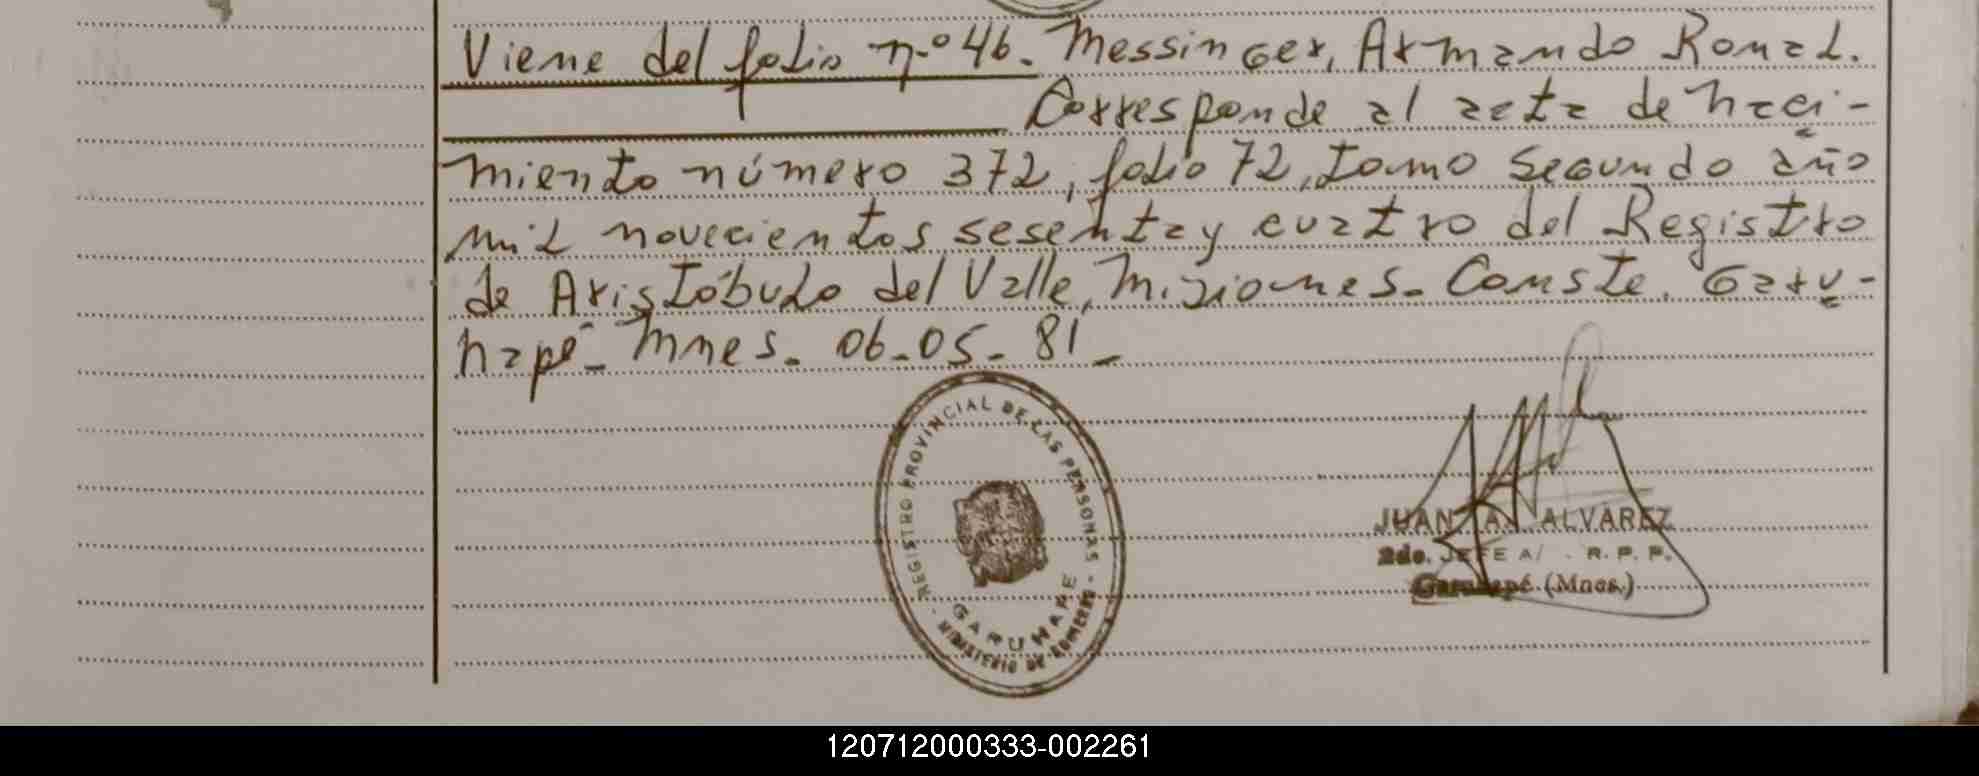 Viene del folio n.º 46. Messinger, Armando Ronal.
Corresponde al acta de naci-
miento número 372, folio 72, tomo segundo año
mil novecientos sesenta y cuatro del Registro
de Aristóbulo del Valle, Misiones. Conste. Garu-
hapé - Mnes. 06-05-81-
REGISTRO PROVINCIAL DE LAS PERSONAS -
GARUHAPE
MINISTERIO DE GOBIERNO -
JUAN A. ALVAREZ
2do. JEFE A/ R. P. P.
Garuhapé (Mnes.)
120712000333-002261